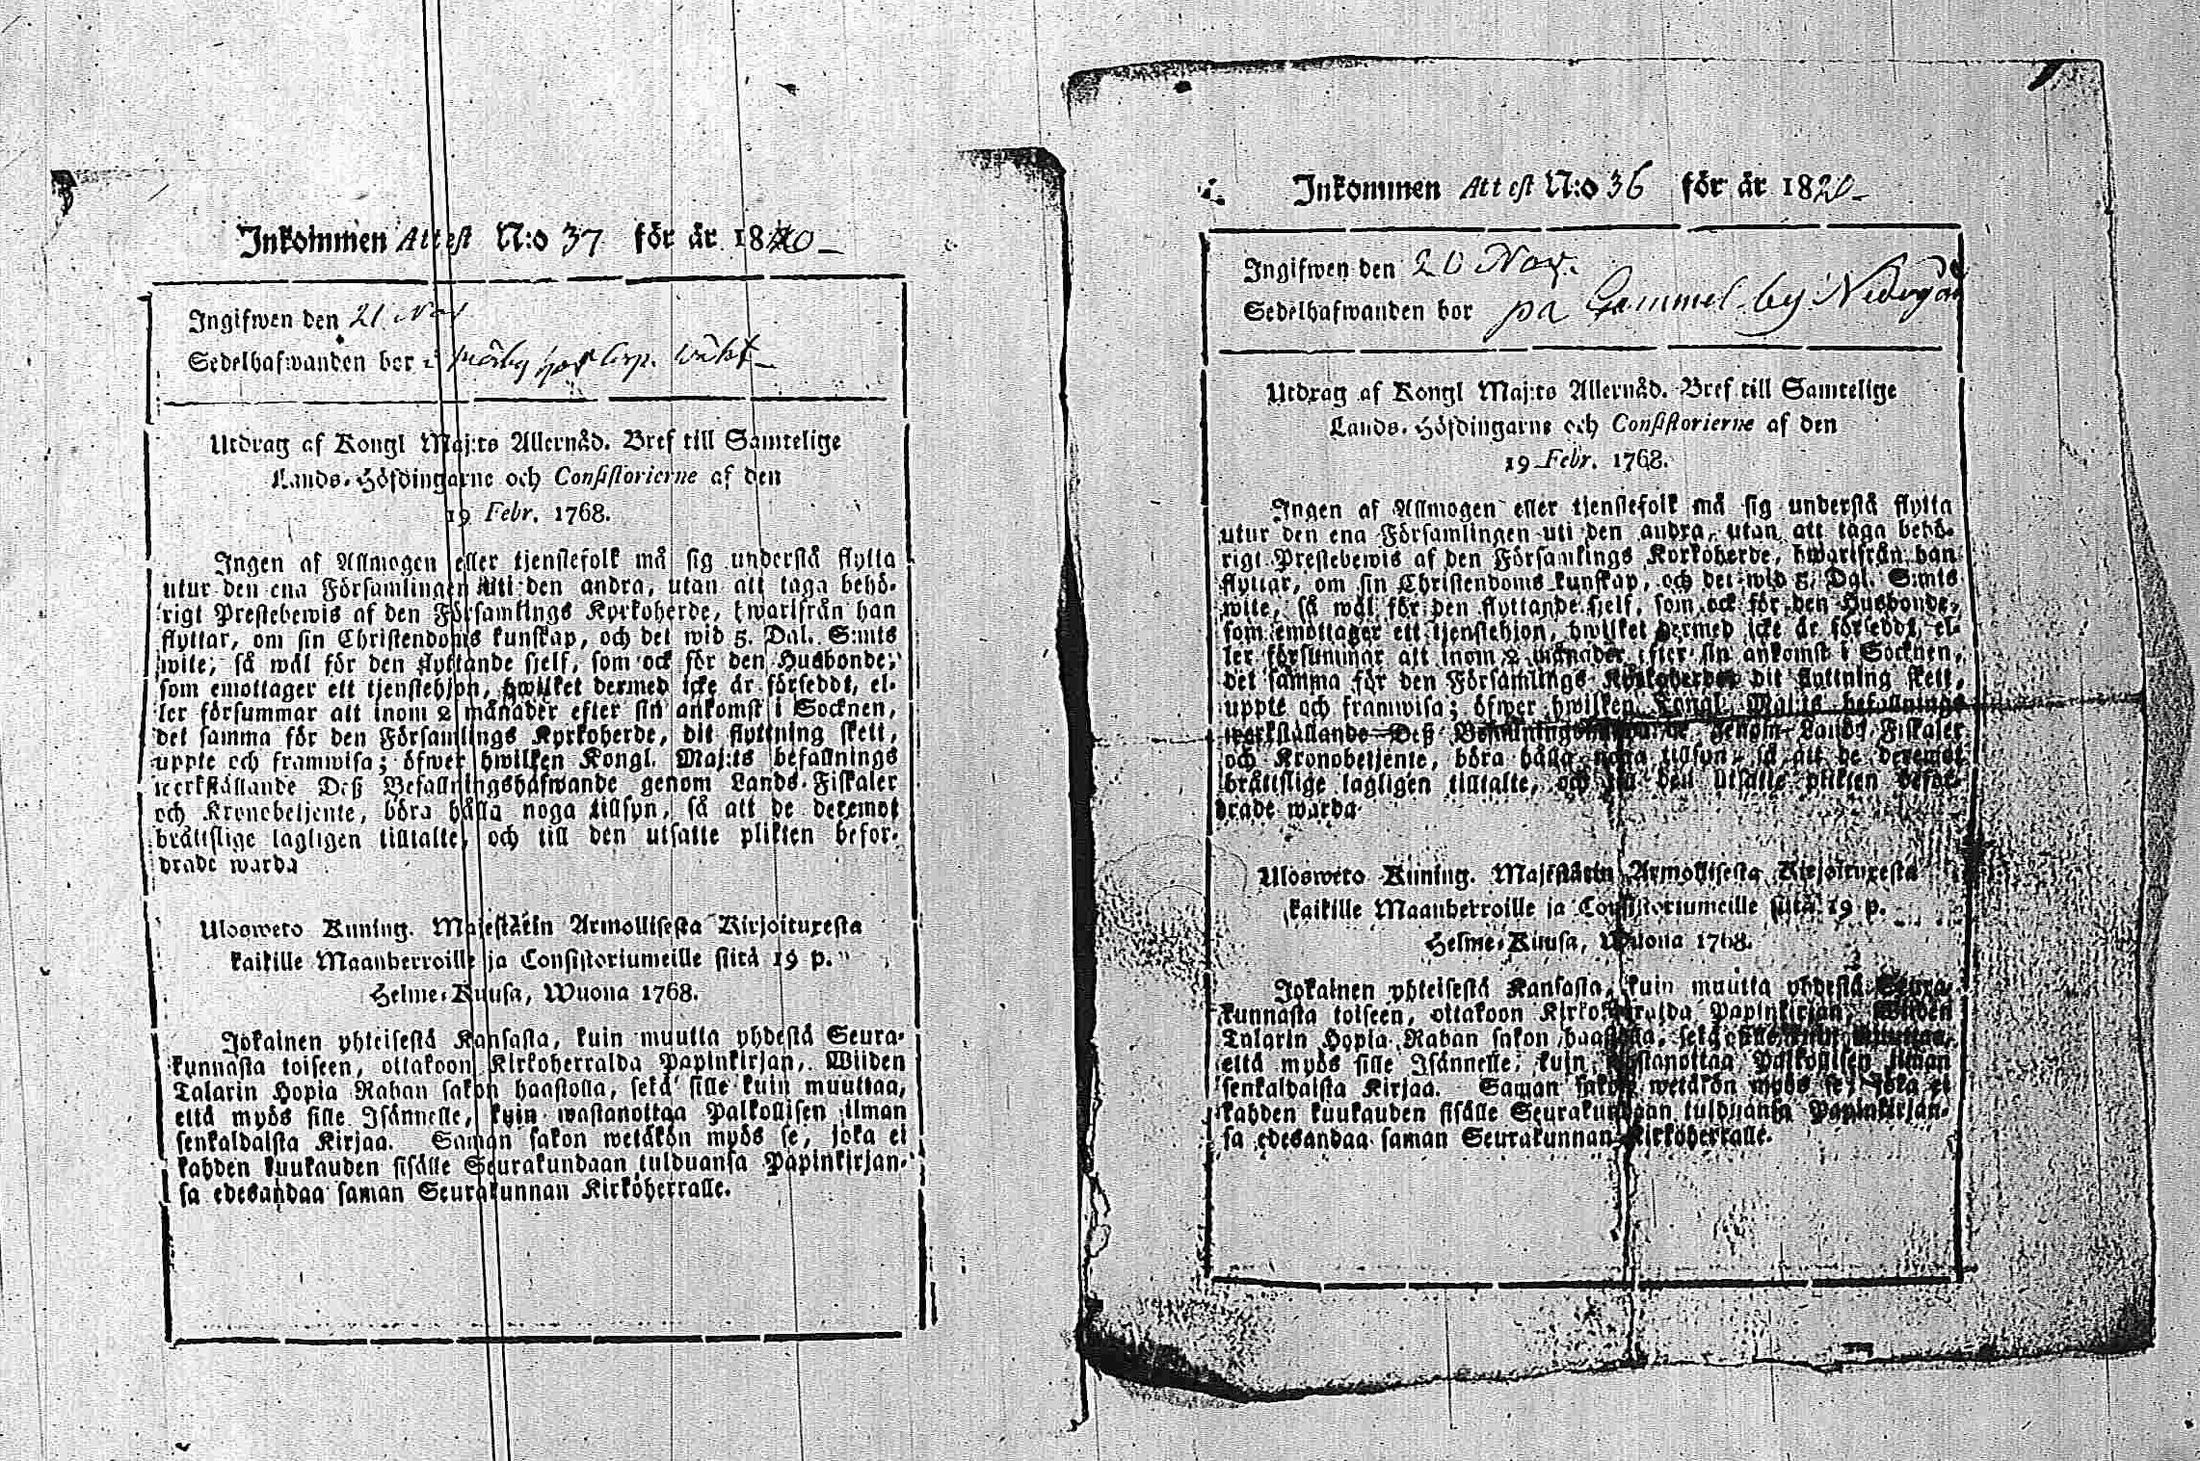 Inkommen Attest N:o 37 för år 1820
Ingifwen den 21 Nov
Sedelhafwanden bor
Utdrag af Kongl Maj:ts Allernåd. Bref till Samtelige
Lands-Höfdingarne och Consistorierne af den
19 Febr. 1768.
Ingen af Allmogen eller tjenstefolk må sig understå flytta
utur den ena Församlingen uti den andra, utan att taga behö-
rigt Prestebewis af den Församlings Kyrkoherde, hwarifrån han
flyttar, om sin Christendoms kunskap, och det wid 5. Dal. S:mts
wite; så wäl för den flyttande sjelf, som ock för den Husbonde,
som emottager ett tjenstehjon, hwilket dermed icke är försedt, el-
ler försummar att inom 2 månader efter sin ankomst i Socknen,
det samma för den Församlings Kyrkoherde, dit flyttning skett,
uppte och framwisa; öfwer hwilken Kongl. Maj:ts befallnings
werkställande Deß Befallningshafwande genom Lands-Fiskaler
och Kronobetjente, böra hålla noga tillsyn, så att de deremot
bråttslige lagligen tilltalte, och till den utsatte plikten befor-
drade warda
Ulosweto Kuning. Majestätin Armollisesta Kirjoituxesta
kaikille Maanherroille ja Consistoriumeille siitä 19 p.
Helme-Kuusa, Wuona 1768.
Jokainen yhteisestä Kansasta, kuin muutta yhdestä Seura-
kunnasta toiseen, ottakoon Kirkoherralda Papinkirjan, Wiiden
Talarin Hopia Rahan sakon haastolla, sekä sille kuin muuttaa,
että myös sille Isännelle, kuin wastanottaa Palkollisen ilman
senkaldaista Kirjaa. Saman sakon wetäkön myös se, joka ei
kahden kuukauden sisälle Seurakundaan tulduansa Papinkirjan-
sa edesandaa saman Seurakunnan Kirkoherralle.
Inkommen Attest N:o 36 för år 1820
Ingifwen den 20 Nov.
Sedelhafwanden bor på Gammelby
Utdrag af Kongl Maj:ts Allernåd. Bref till Samtelige
Lands-Höfdingarne och Consistorierne af den
19 Febr. 1768.
Ingen af Allmogen eller tjenstefolk må sig understå flytta
utur den ena Församlingen uti den andra, utan att taga behö-
rigt Prestebewis af den Församlings Korkoherde, hwarifrån han
flyttar, om sin Christendoms kunskap, och det wid 5. Dal. S:mts
wite, så wäl för den flyttande sjelf, som ock för den Husbonde,
som emottager ett tjenstehjon, hwilket dermed icke är försedt, el-
ler försummar att inom 2 månader efter sin ankomst i Socknen,
det samma för den Församlings Kyrkoherde, dit flyttning skett,
uppte och framwisa; öfwer hwilken Kongl. Maj:ts befallnings
werkställande Deß genom Lands-Fiskaler
och Kronobetjente, böra hålla noga tillsyn, så att de deremot
bråttslige lagligen tilltalte, och till den utsatte plikten befor-
drade warda
Ulosweto Kuning. Majestätin Armollisesta Kirjoituxesta
kaikille Maanherroille ja Consistoriumeille siitä 19 p.
Helme-Kuusa, Wuona 1768.
Jokainen yhteisestä Kansasta, kuin muutta yhdestä Seura-
kunnasta toiseen, ottakoon Kirkoherralda Papinkirjan, Wiiden
Talarin Hopia Rahan sakon haastolla, sekä sille kuin muuttaa,
että myös sille Isännelle, kuin wastanottaa Palkollisen ilman
senkaldaista Kirjaa. Saman sakon wetäkön myös se, joka ei
kahden kuukauden sisälle Seurakundaan tulduansa Papinkirjan-
sa edesandaa saman Seurakunnan Kirkoherralle.